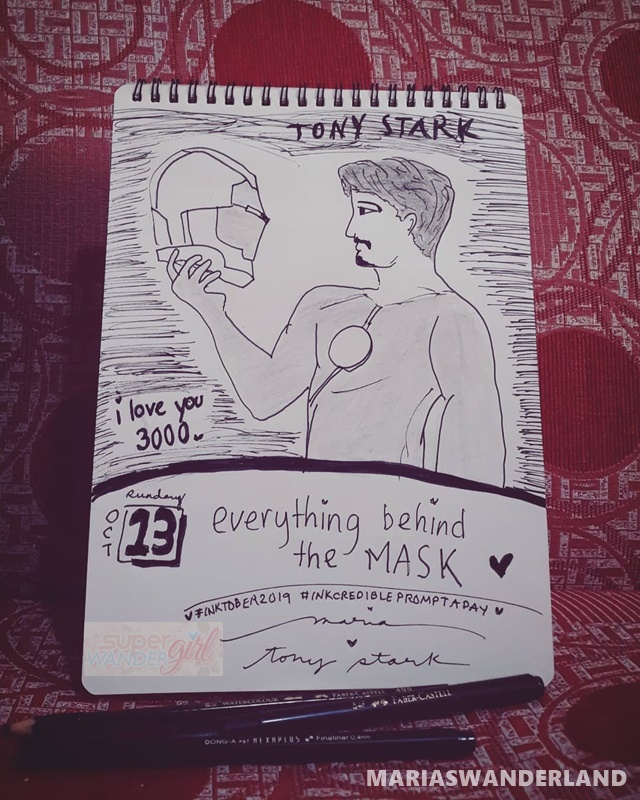 TONY STARK
i love you
3000
Sunday
OCT
13
everything behind
the MASK
#INKTOBER2019 #INKCREDIBLEPROMPTADAY
maria
tony stark
super
WANDER girl
FABER-CASTELL
DONG-A MY HEXAPLUS Fineliner 0.4mm
MARIASWANDERLAND